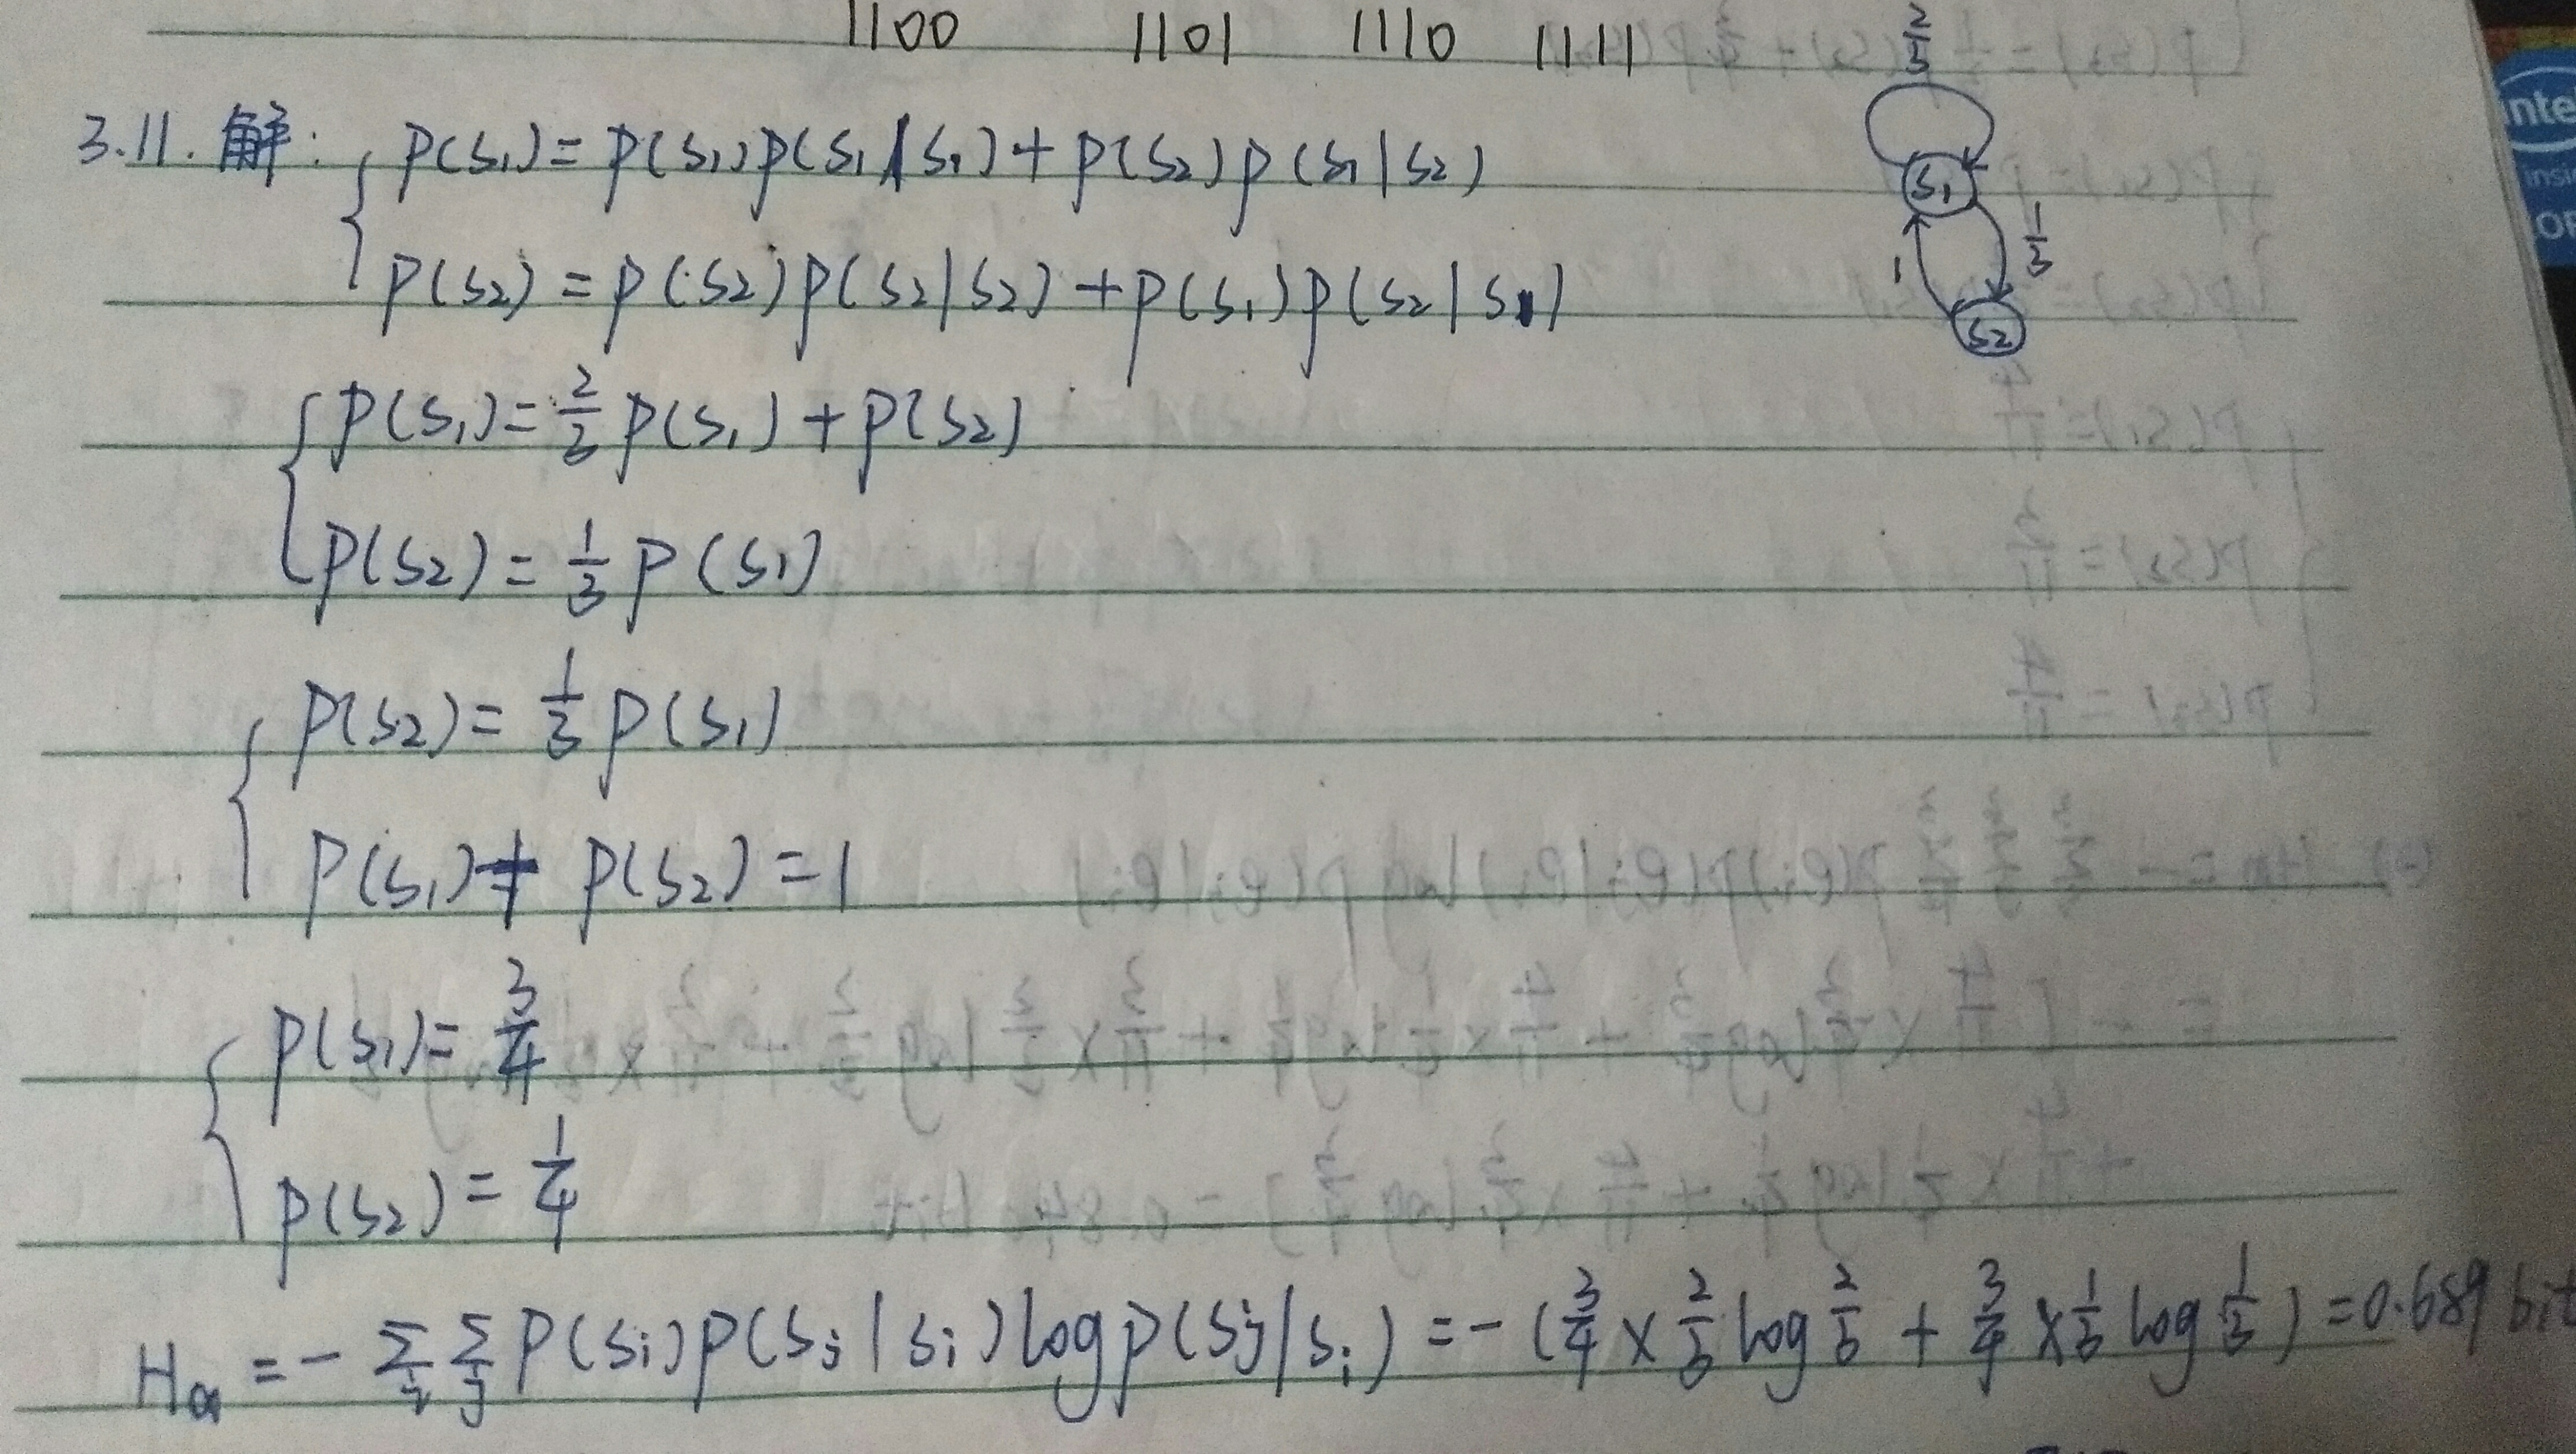 1100 1101 1110 1111
3.11. 解: P(S₁) = P(S₁)P(S₁|S₁) + P(S₂)P(S₁|S₂)
P(S₂) = P(S₂)P(S₂|S₂) + P(S₁)P(S₂|S₁)
2/3
S₁
1/3
1
S₂
P(S₁) = 2/3 P(S₁) + P(S₂)
P(S₂) = 1/3 P(S₁)
P(S₂) = 1/3 P(S₁)
P(S₁) + P(S₂) = 1
P(S₁) = 3/4
P(S₂) = 1/4
H∞ = - Σi Σj P(Si)P(Sj|Si) log P(Sj|Si) = -(3/4 × 2/3 log 2/3 + 3/4 × 1/3 log 1/3) = 0.689 bit
inte
insi